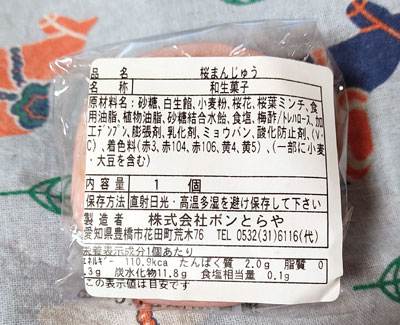 品 名 桜まんじゅう
名 称 和生菓子
原材料名:砂糖、白生餡、小麦粉、桜花、桜葉ミンチ、食
用油脂、植物油脂、砂糖結合水飴、食塩、梅酢/トレハロース、加
工デンプン、膨張剤、乳化剤、ミョウバン、酸化防止剤、(V.
C)、着色料(赤3、赤104、赤106、黄4、黄5)、(一部に小麦
・大豆を含む)
内容量 1 個
保存方法 直射日光・高温多湿を避け保存して下さい
製造者 株式会社ボンとらや
愛知県豊橋市花田町荒木76 TEL 0532(31)6116(代)
栄養表示成分1個あたり
エネルギー 110.9kca たんぱく質 2.0g 脂質 0
.3g 炭水化物11.8g 食塩相当量 0.1g
この表示値は目安です